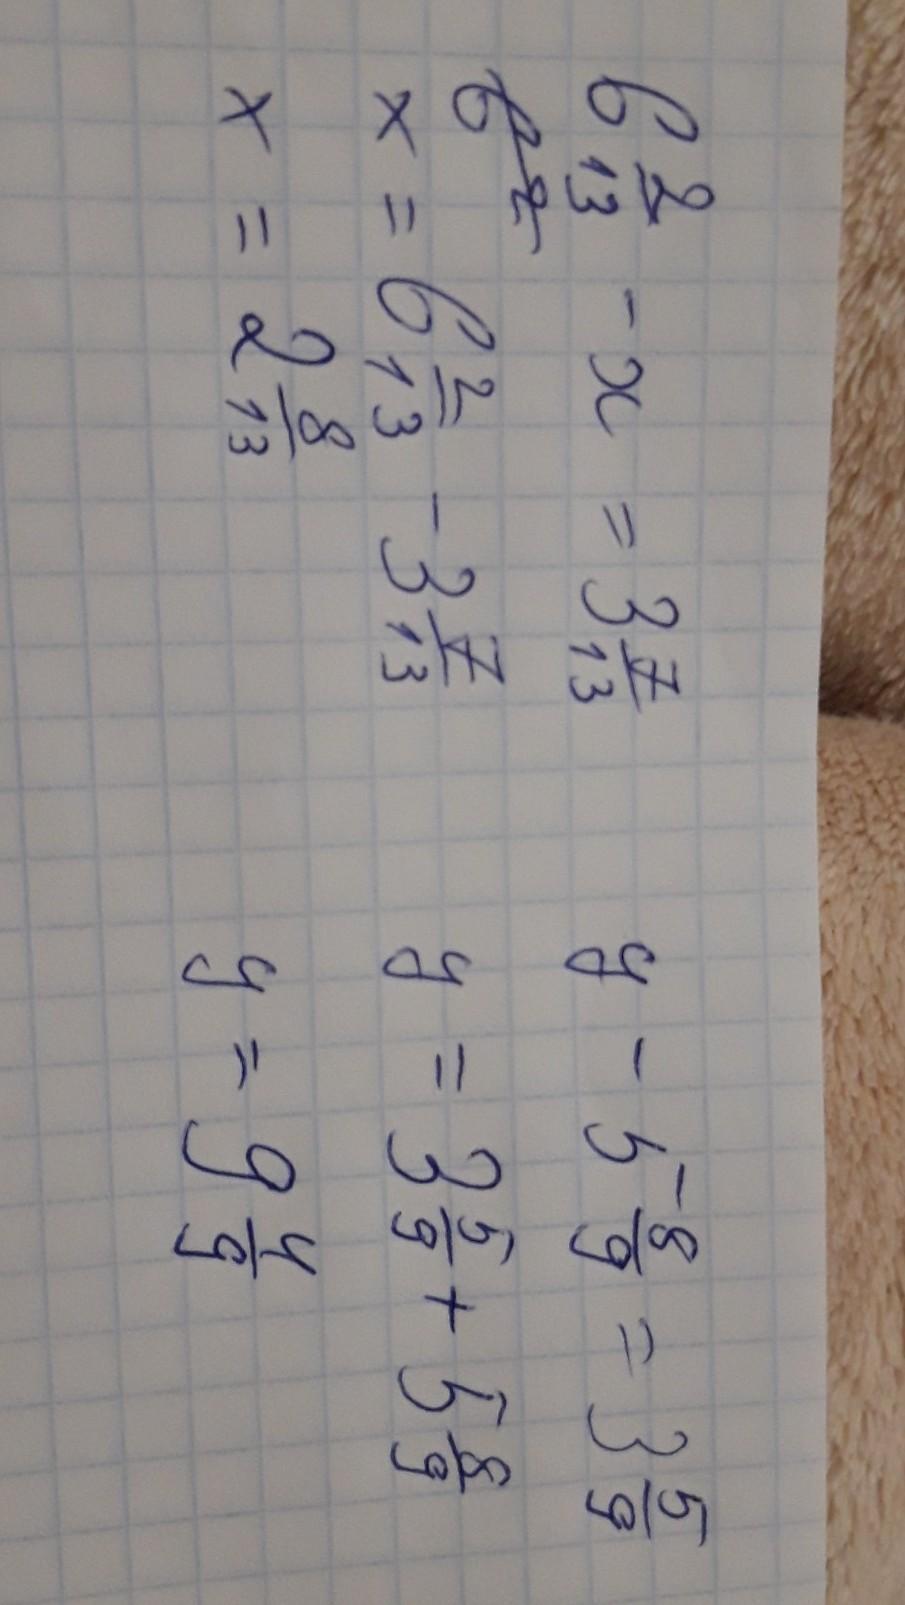 6 2/13 - x = 3 7/13
x = 6 2/13 - 3 7/13
x = 2 8/13
y - 5 8/9 = 3 5/9
y = 3 5/9 + 5 8/9
y = 9 4/9